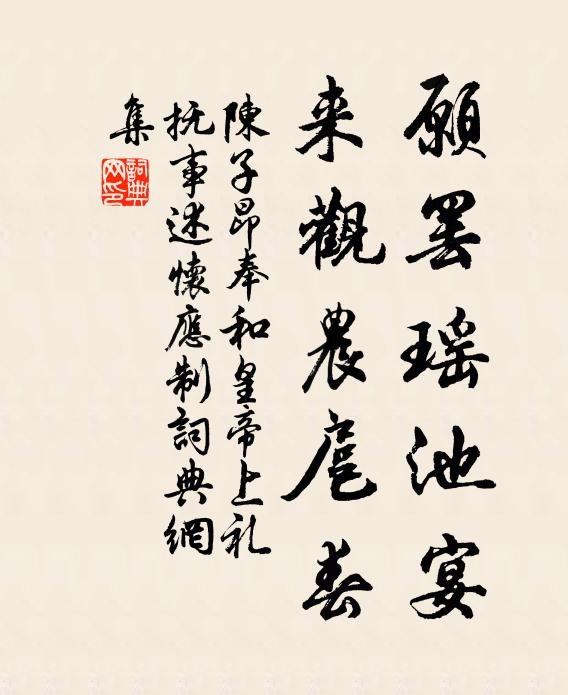 願罢瑶池宴
来觀農扈春
陳子昂奉和皇帝上礼
抚事述懷應制詞典網
集
詞典
网印